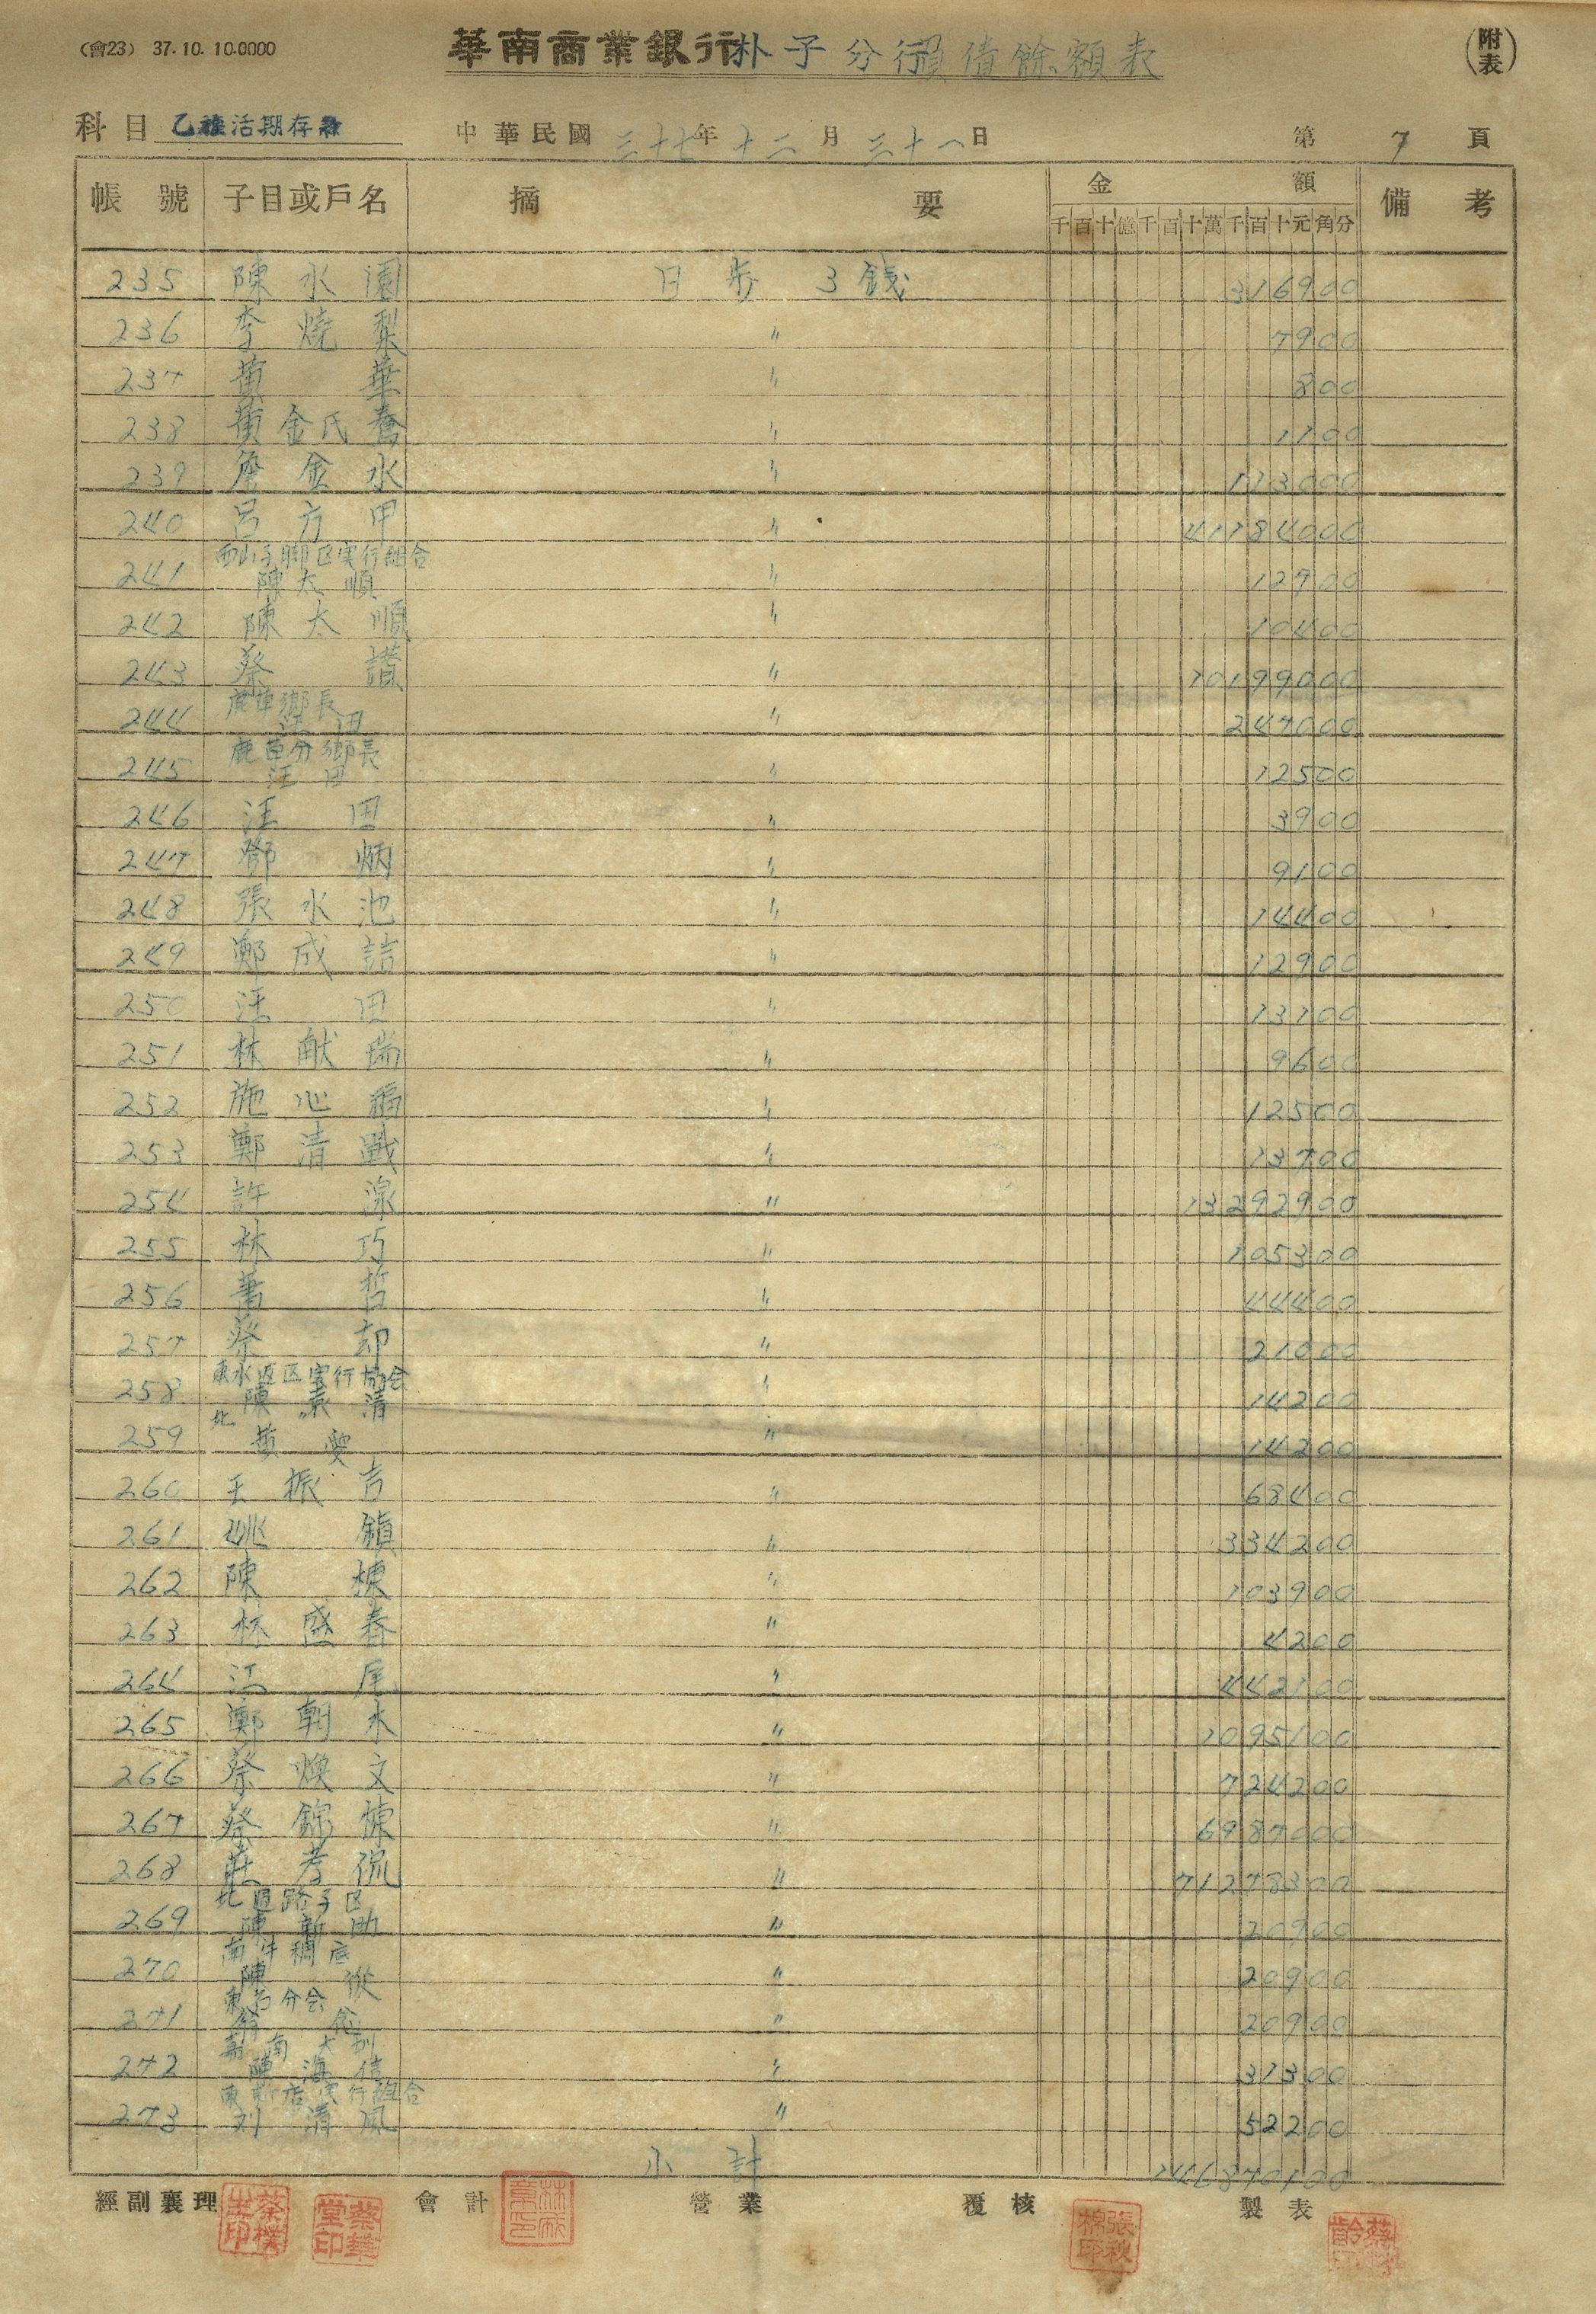 (會23) 37.10.10.0000
華南商業銀行朴子分行負債餘額表
(附表)
科目 乙種活期存款
中華民國三十七年十二月三十一日
第 7 頁
帳號 子目或戶名 摘要 金額 備考
千百十億千百十萬千百十元角分
235 陳水園 日步 3錢 316900
236 李燒梨 〃 7900
237 黃華 〃 800
238 黃金氏鶯 〃 1100
239 詹金水 〃 113000
240 呂方甲 〃 41184000
241 西山子脚区実行組合 陳太順 〃 12900
242 陳太順 〃 10400
243 蔡讚 〃 10199000
244 鹿草鄉長 汪田 〃 247000
245 鹿草分鄉長 汪田 〃 12500
246 汪田 〃 3900
247 鄧炳 〃 9100
248 張水池 〃 14400
249 鄭成詰 〃 12900
250 汪田 〃 13100
251 林献瑞 〃 9600
252 施心 〃 12500
253 鄭清戰 〃 13700
254 許湶 〃 13292900
255 林巧 〃 105300
256 蕭哲 〃 44400
257 蔡却 〃 21000
258 区実行協会 陳清 〃 14200
259 北〃 黃 〃 14200
260 王振吉 〃 68400
261 姚鎮 〃 334200
262 陳棟 〃 103900
263 林盛春 〃 4200
264 江尾 〃 442100
265 鄭朝木 〃 1095100
266 蔡煥文 〃 724200
267 蔡錦棟 〃 6987000
268 莊孝侃 〃 71278300
269 北過路子区 陳新助 〃 20900
270 南牛稠底 陳從 〃 20900
271 東石分会 翁 〃 20900
272 嘉南大圳 陳海信 〃 31300
273 東新店実行組合 刘清風 〃 52200
小計 146870100
經副襄理 會計 營業 覆核 製表